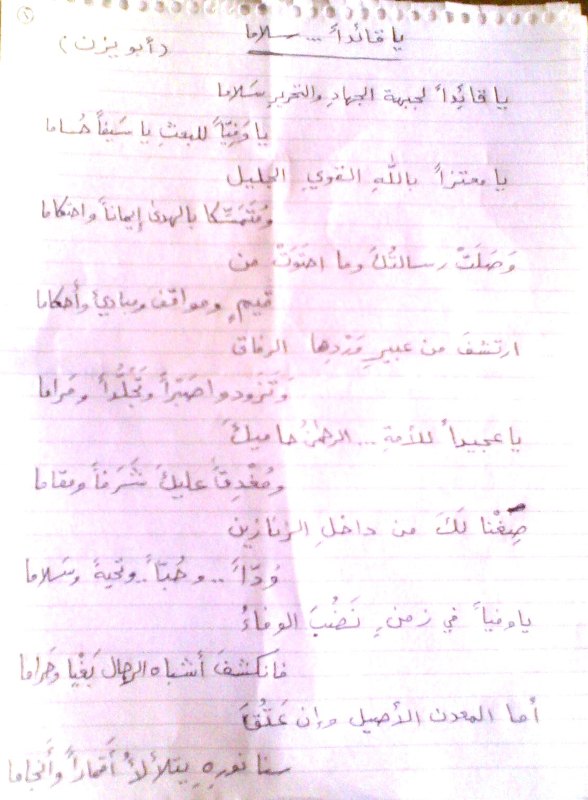 ١
يا قائداً ... سلاما
(أبو يزن)
يا قائِداً لجبهة الجهادِ والتحريرِ سَلاما
يا وَفِيّاً للبعثِ يا سَيفاً حُساما
يا معتزاً باللهِ القوي الجليل
ومُتَمَسِّكا بالهدى إيماناً واحتكاما
وَصَلَتْ رسالتُكَ وما احتَوَتْ من
قيمٍ ومواقف ومبادئ وأحكاما
ارتشفَ من عبيرِ وَرْدِها الرفاق
وتَزَودوا صَبْراً وتَجَلُّداً ومَراما
يا عجيداً للأمةِ ... الرحمنُ حاميكَ
ومُغْدِقاً عليكَ شَرَفاً ومقاما
صِغْنا لَكَ من داخلِ الزنازين
وَدّاً .. وحُبّاً .. وتحيةً وسَلاما
يا وفياً في زمنٍ نَضُبَ الوفاءُ
فانكشفَ أشباه الرجال بَغْيا وحَراما
أما المعدن الأصيل وإن عَتُقَ
سنا نورهِ يتلألأُ أقماراً وأنجاما